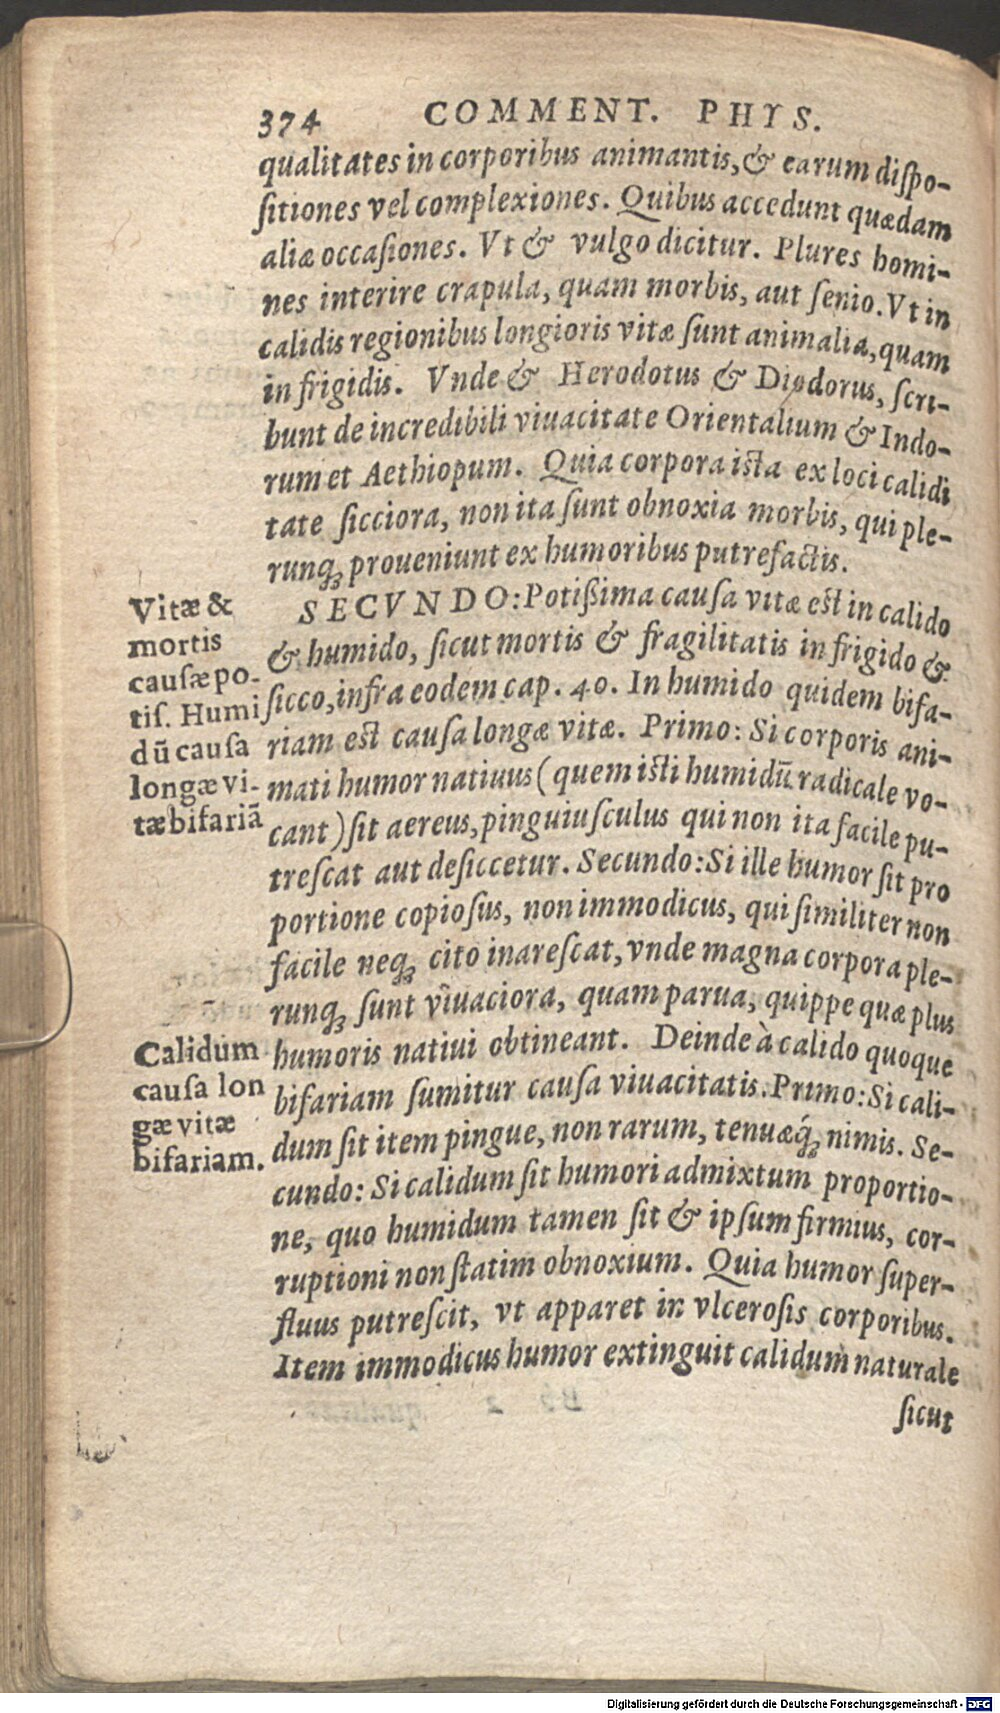 374 COMMENT. PHYS.
qualitates in corporibus animantis, & earum dispo-
sitiones vel complexiones. Quibus accedunt quædam
aliæ occasiones. Vt & vulgo dicitur. Plures homi-
nes interire crapula, quam morbis, aut senio. Vt in
calidis regionibus longioris vitæ sunt animalia, quam
in frigidis. Vnde & Herodotus & Diodorus, scri-
bunt de incredibili viuacitate Orientalium & Indo-
rum et Aethiopum. Quia corpora ista ex loci calidi
tate sicciora, non ita sunt obnoxia morbis, qui ple-
runqꝫ proueniunt ex humoribus putrefactis.
Vitæ &
mortis
causæ po-
tis. Humi
dũ causa
longæ vi-
tæ bifariã
SECVNDO: Potißima causa vitæ est in calido
& humido, sicut mortis & fragilitatis in frigido &
sicco, infra eodem cap. 40. In humido quidem bifa-
riam est causa longæ vitæ. Primo: Si corporis ani-
mati humor natiuus (quem isti humidũ radicale vo-
cant) sit aereus, pinguiusculus qui non ita facile pu-
trescat aut desiccetur. Secundo: Si ille humor sit pro
portione copiosus, non immodicus, qui similiter non
facile neqꝫ cito inarescat, vnde magna corpora ple-
runqꝫ sunt viuaciora, quam parua, quippe quæ plus
humoris natiui obtineant. Deinde à calido quoque
bifariam sumitur causa viuacitatis. Primo: Si cali-
dum sit item pingue, non rarum, tenuæq́ꝫ nimis. Se-
cundo: Si calidum sit humori admixtum proportio-
ne, quo humidum tamen sit & ipsum firmius, cor-
ruptioni non statim obnoxium. Quia humor super-
fluus putrescit, vt apparet in vlcerosis corporibus.
Item immodicus humor extinguit calidum naturale
Calidum
causa lon
gæ vitæ
bifariam.
sicut
Digitalisierung gefördert durch die Deutsche Forschungsgemeinschaft - DFG